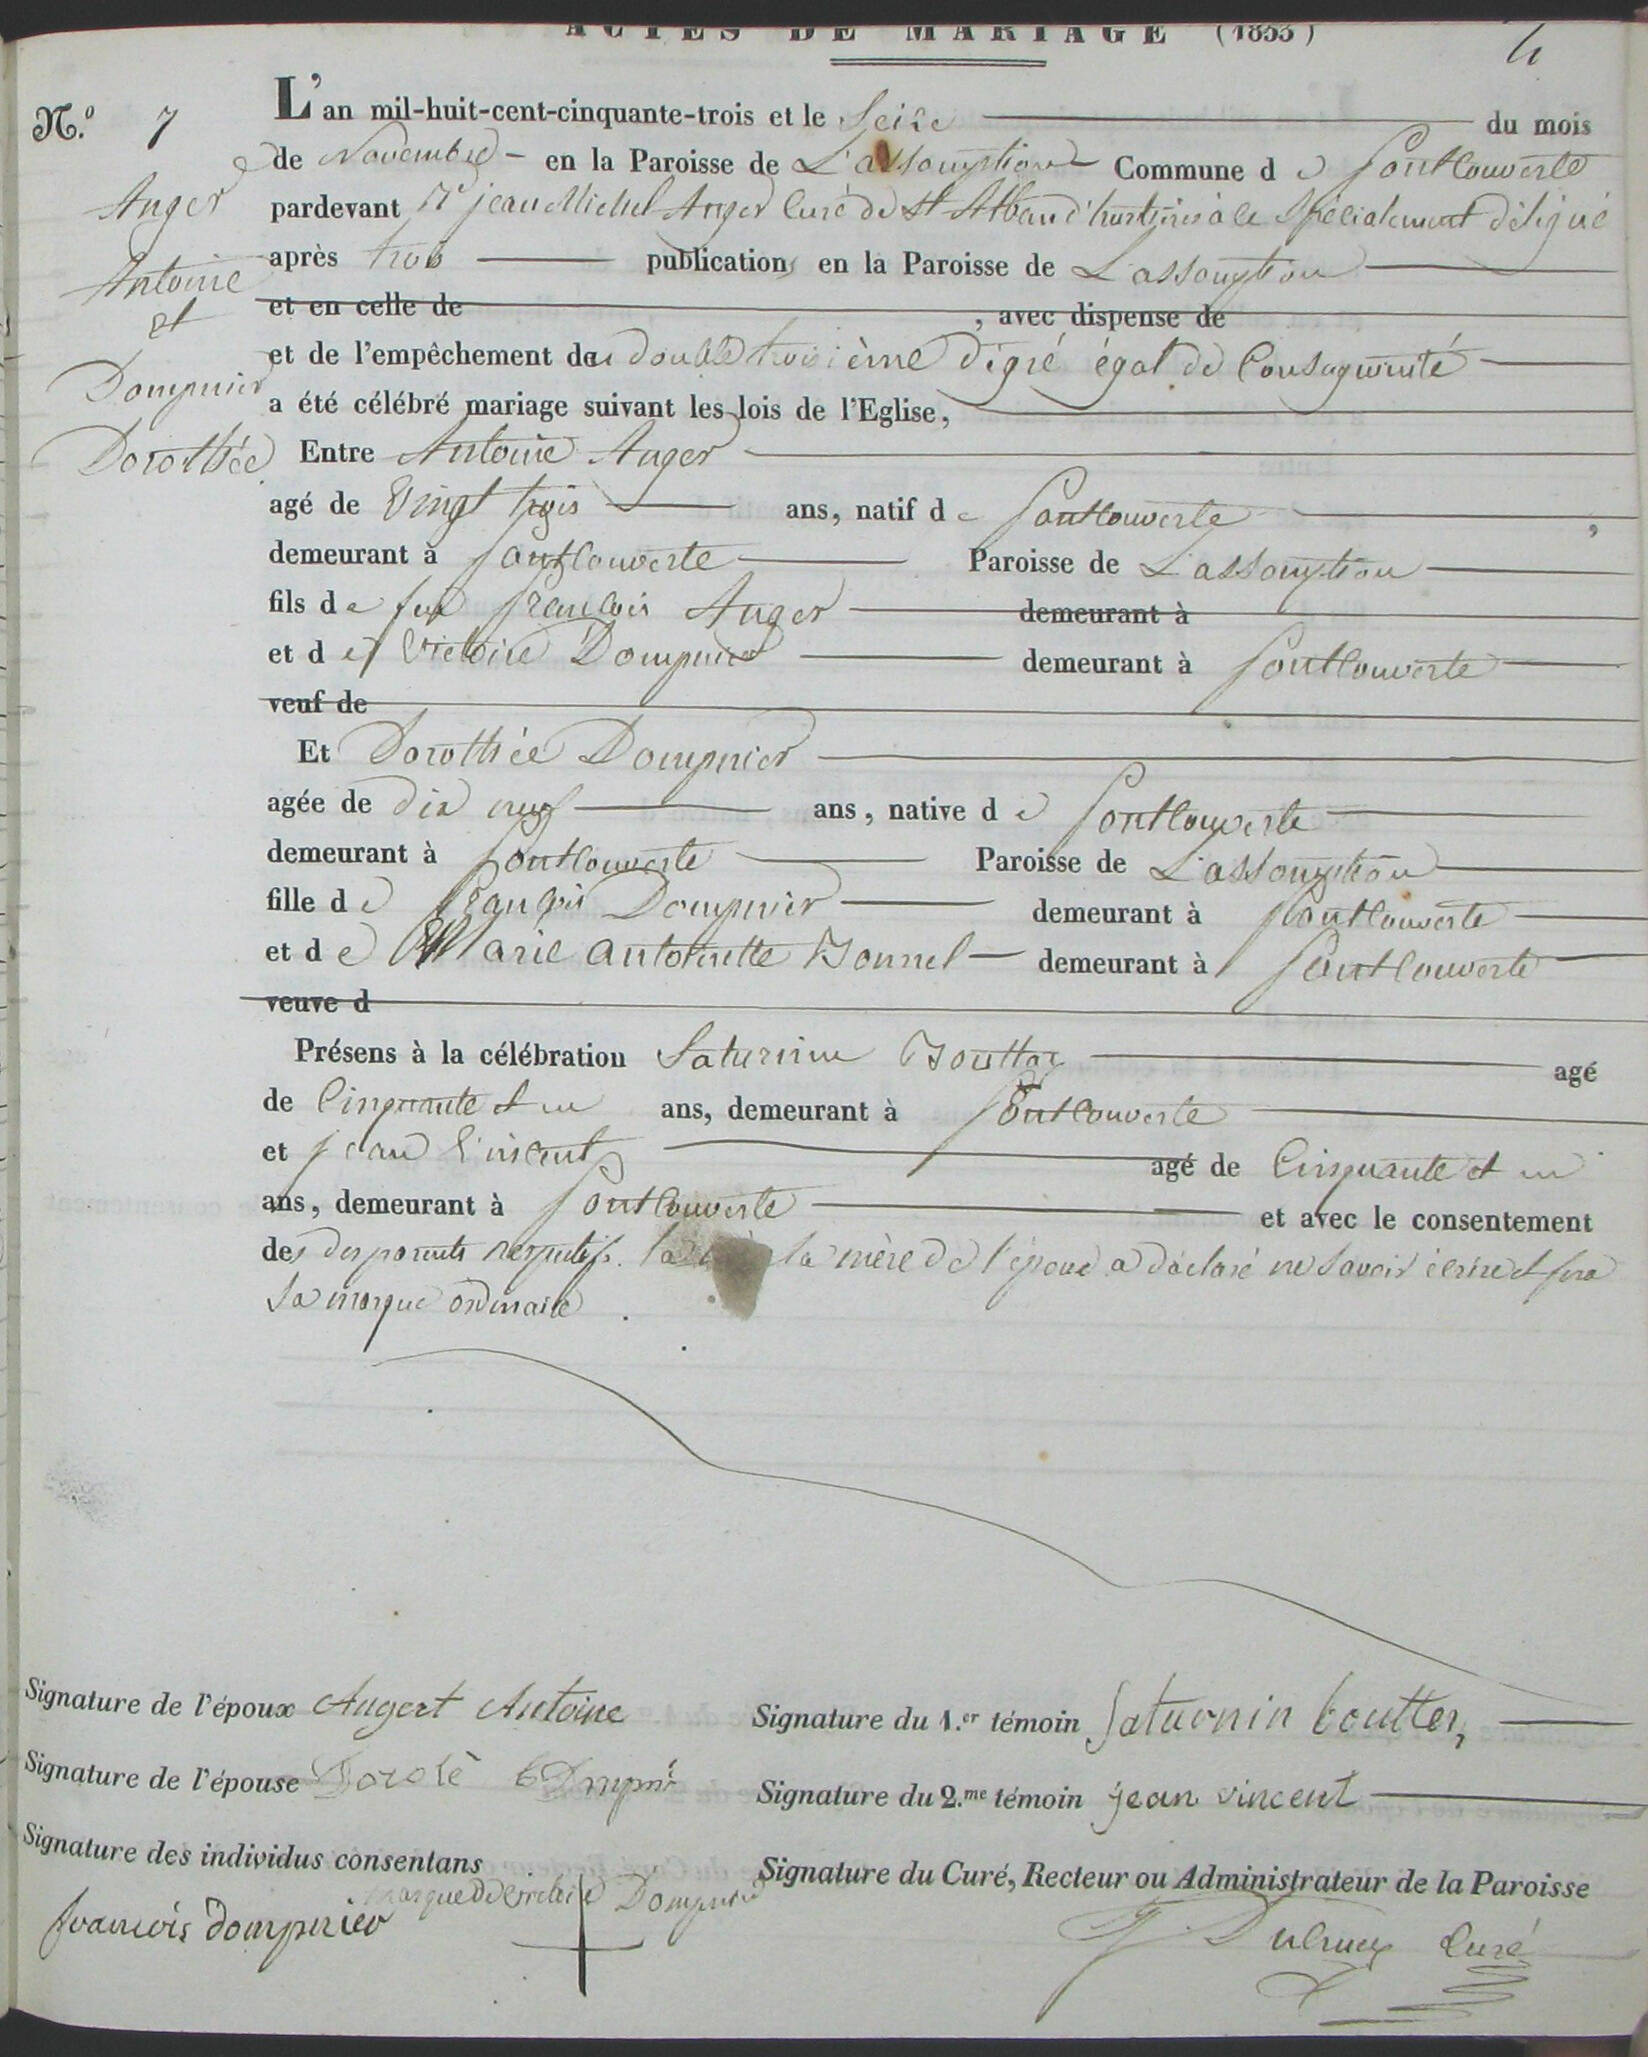 ACTES DE MARIAGE (1853)
N.º 7
Anger
Antoine
et
Dompnier
Dorothée
L'an mil-huit-cent-cinquante-trois et le Seize du mois
de Novembre - en la Paroisse de L'assomption Commune de Pontlouverte
pardevant Rd jean Michel Anger Curé de St Alban d'hurtières à ce spécialement délégué
après trois publications en la Paroisse de L'assomption
et en celle de , avec dispense de
et de l'empêchement du double troisième dégré égal de Consaguinité
a été célébré mariage suivant les lois de l'Eglise,
Entre Antoine Anger
agé de vingt trois ans, natif de Pontlouverte ,
demeurant à Pontlouverte Paroisse de L'assomption
fils de feu françois Anger demeurant à
et de Victoire Dompnier demeurant à Pontlouverte
veuf de
Et Dorothée Dompnier
agée de dix neuf ans, native de Pontlouverte
demeurant à Pontlouverte Paroisse de L'assomption
fille de françois Dompnier demeurant à Pontlouverte
et de Marie antoinette Bonnel demeurant à Pontlouverte
veuve d
Présens à la célébration Saturnin Bouttaz agé
de Cinquante et un ans, demeurant à Pontlouverte
et jean Vincent agé de Cinquante et un
ans, demeurant à Pontlouverte et avec le consentement
des des parents respectifs. la mère de l'époux a déclaré ne savoir écrire et fera
sa marque ordinaire.
Signature de l'époux Angert Antoine
Signature de l'épouse Dorotè
Signature des individus consentans
marque de Victoire Dompnier
francois dompnier
Signature du 1.er témoin Saturnin bouttaz,
Signature du 2.me témoin jean vincent
Signature du Curé, Recteur ou Administrateur de la Paroisse
Curé